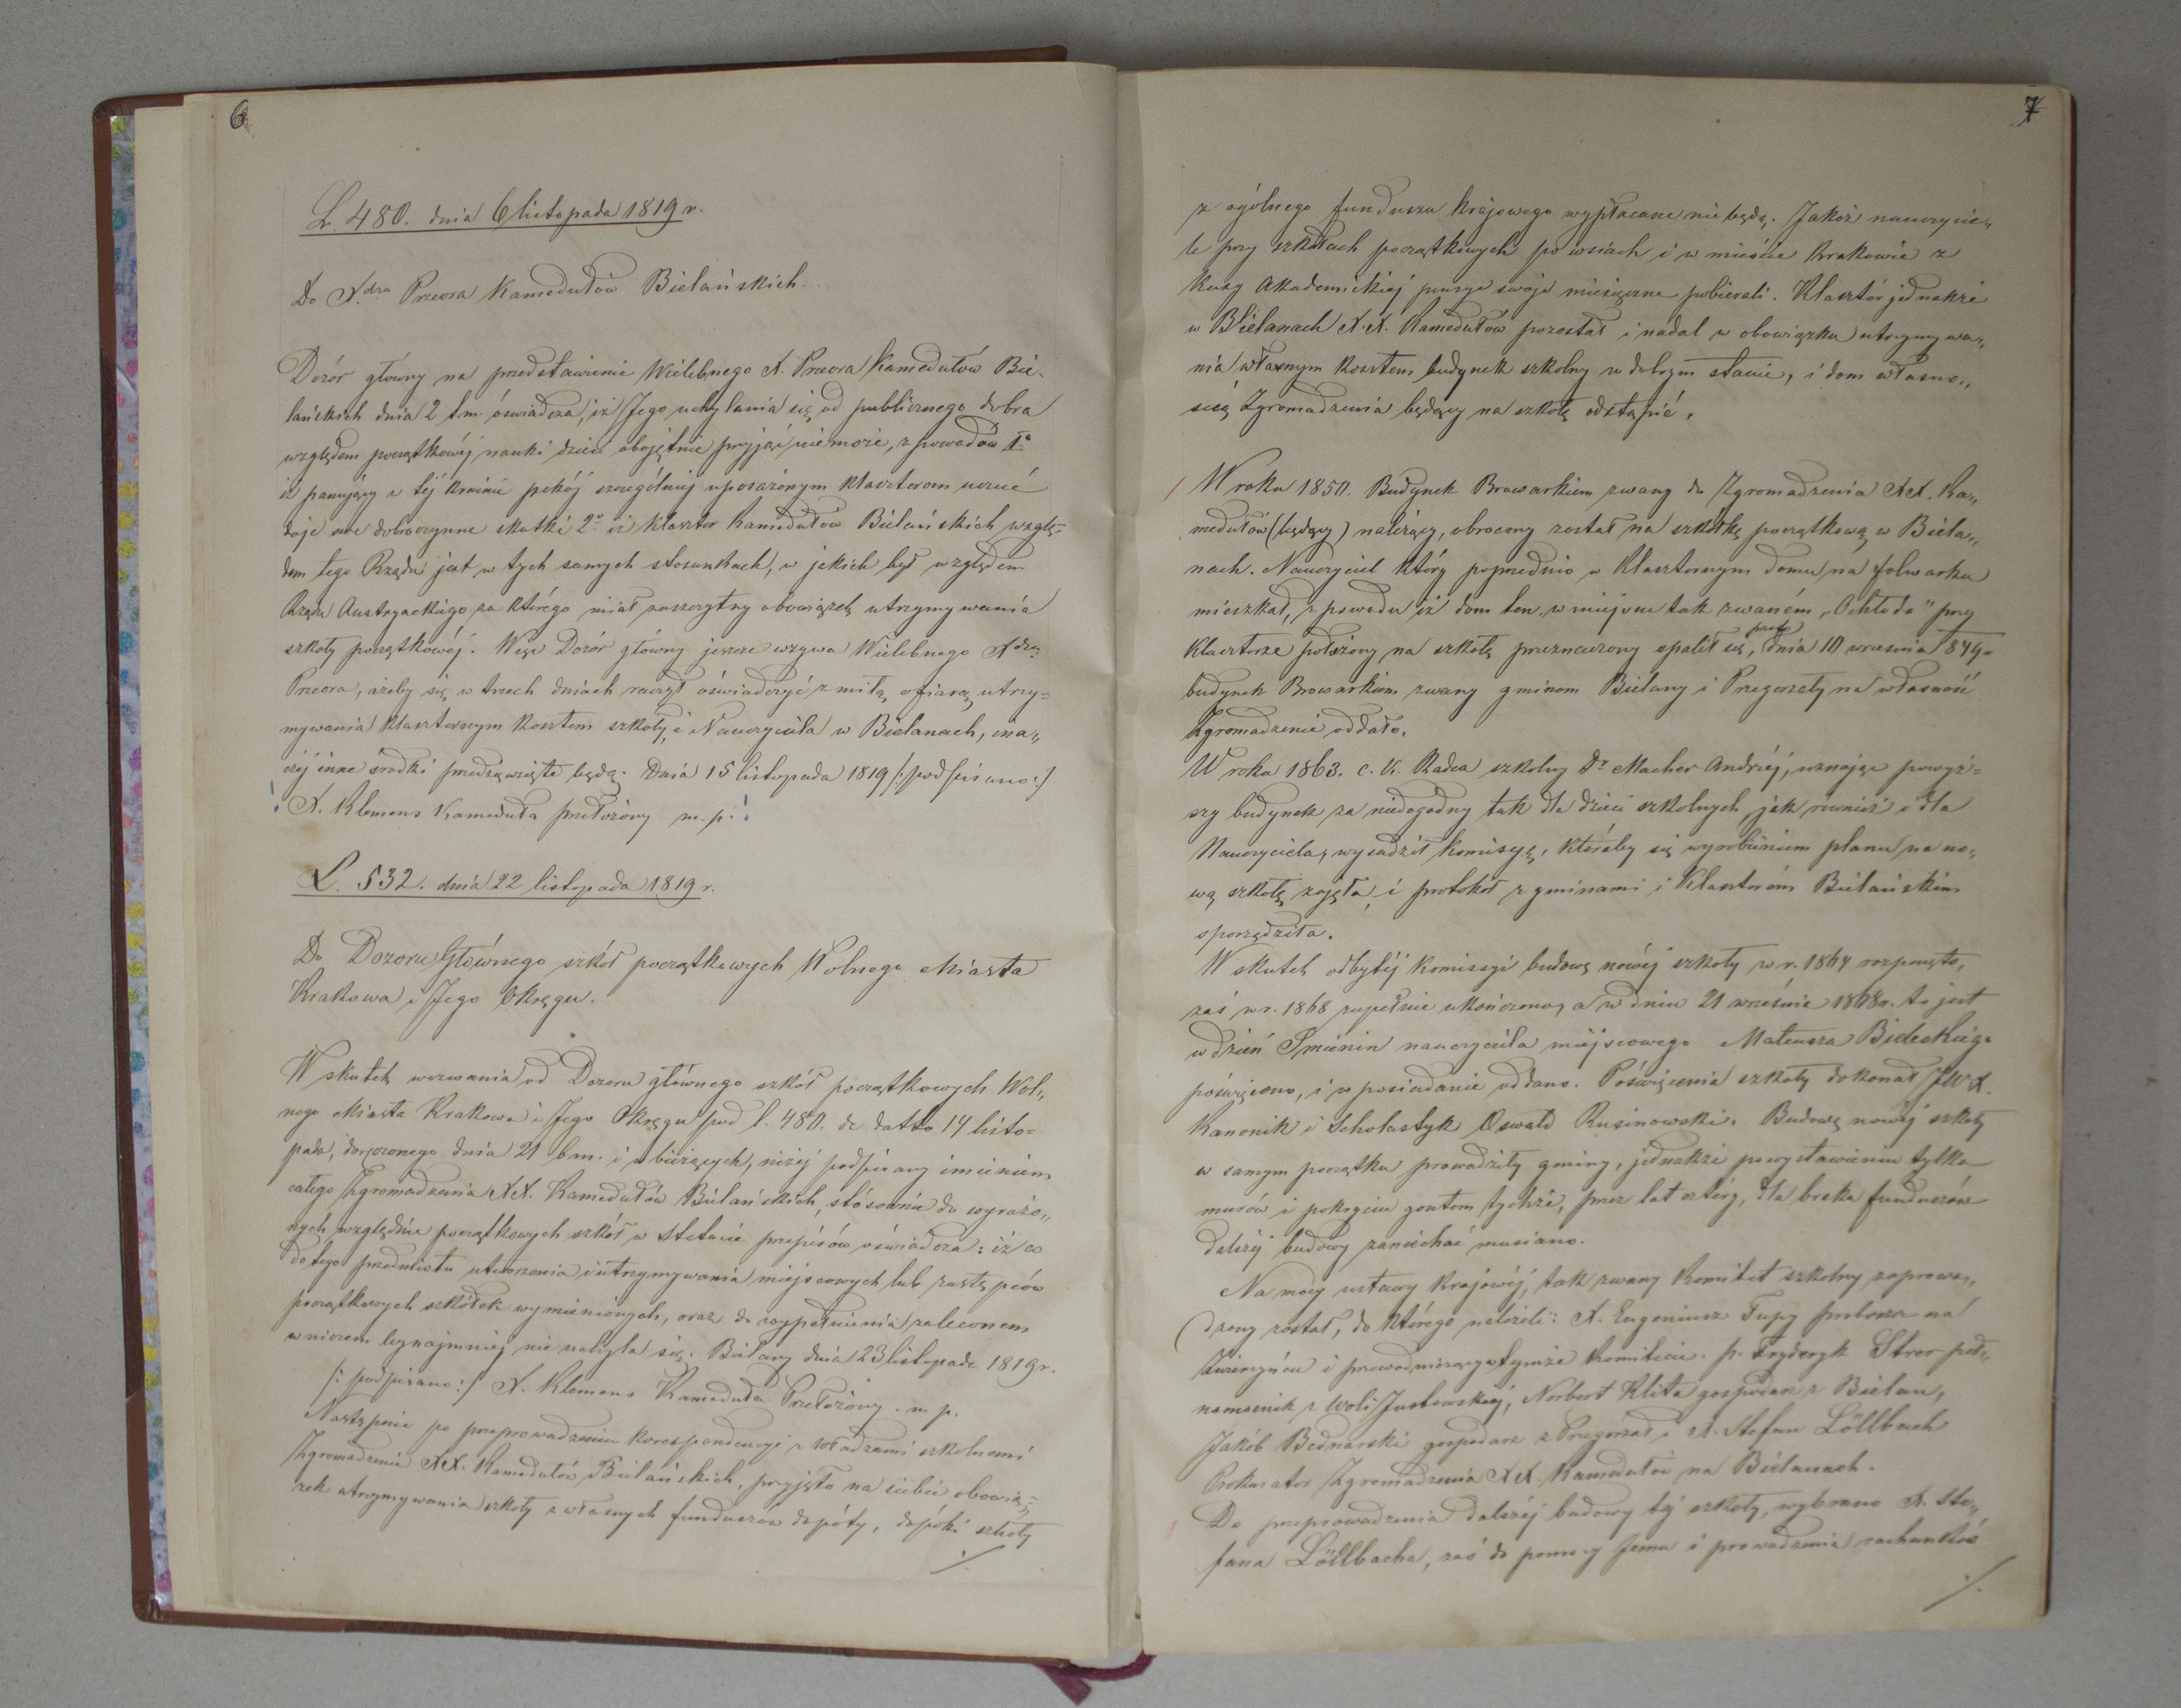 6
L. 480. dnia 6 listopada 1819 r.
Do X.dza Przeora Kamedułów Bielańskich.
Dozór główny na przedstawienie Wielebnego X. Przeora Kamedułów Bie-
lańskich dnia 2 b.m. oświadcza, iż Jego uchylania się od publicznego dobra
względem początkowéj nauki dzieci obojętnie przyjąć nie może, z powodów 1o
iż panujący w téj krainie pokój szczególniéj uposażonym klasztorom uczuć
daje swe dobroczynne skutki 2o iż Klasztor Kamedułów Bielańskich wzglę-
dem tego Rządu jest w tych samych stosunkach, w jakich był względem
Rządu Austryackiego za którego miał zaszczytny obowiązek utrzymywania
szkoły początkowéj. Więc Dozór główny jeszcze wzywa Wielebnego X.dza
Przeora, ażeby się w trzech dniach raczył oświadczyć z miłą ofiarą utrzy-
mywania klasztornym kosztem szkoły i Nauczyciela w Bielanach, ina„
czéj inne środki przedsięwzięte będą. Dnia 15 listopada 1819 /:podpisano:/
X. Klemens Kameduła przełożony m. p.
L. 532. dnia 22 listopada 1819 r.
Do Dozoru Głównego szkół początkowych Wolnego Miasta
Krakowa i Jego Okręgu.
W skutek wezwania od Dozoru głównego szkół początkowych Wol„
nego Miasta Krakowa i Jego Okręgu pod l. 480. de datto 14 listo-
pada, doręczonego dnia 21 b.m. i r. bieżących, niżéj podpisany imieniem
całego Zgromadzenia XX. Kamedułów Bielańskich, stósownie do wyrażo„
nych względnie początkowych szkół w Statucie przepisów oświadcza: iż co
do tego przedmiotu utworzenia i utrzymywania miejscowych lub zastępców
początkowych szkółek wymienionych, oraz do wypełnienia zaleconem
w niczem bynajmniéj nie uchyla się. Bielany dnia 23 listopada 1819 r.
/: podpisano:/ X. Klemens Kameduła Przełożony. m. p.
Następnie po przeprowadzeniu korespondencyi z władzami szkolnemi
Zgromadzenie XX. Kamedułów Bielańskich, przyjęło na siebie obowią-
zek utrzymywania szkoły z własnych funduszów dopóty, dopóki szkoły
./.
7
z ogólnego funduszu krajowego wypłacane nie będą. Jakoż nauczycie„
le przy szkołach początkowych po wsiach i w mieście Krakowie z
Kasy Akademickiéj pensye swoje miesięczne pobierali. Klasztór jednakże
w Bielanach X.X. Kamedułów pozostał i nadal w obowiązku utrzymywa„
nia własnym kosztem budynek szkolny w dobrym stanie, i dom własno„
scią Zgromadzenia będący na szkołę odstąpić.
W roku 1850. Budynek Browarkiem zwany do Zgromadzenia XX. Ka„
medułów (będący) należący, obrocony został na szkółkę początkową w Biela„
nach. Nauczyciel który poprzednio w Klasztornym domu na folwarku
mieszkał, z powodu iż dom ten w miejscu tak zwaném „Ochłoda" przy
Klasztorze położony na szkołę przeznaczony spalił się, przeto dnia 10 wrzesnia 849 r
budynek Browarkiem zwany gminom Bielany i Przegorzały na własność
Zgromadzenie oddało.
W roku 1863. c. k. Radca szkolny Dr Macher Andrzéj, uznając powyż-
szy budynek za niedogodny tak dla dzieci szkolnych jak również i dla
Nauczyciela, wysadził komisyę, któraby się wyrobieniem planu na no„
wą szkołę zajęła, i protokół z gminami i Klasztorém Bielańskim
sporządziła.
W skutek odbytéj komissyi budowę nowéj szkoły w r. 1864 rozpoczęto,
zaś w r. 1868 zupełnie ukończono, a w dniu 21 wrzesnia 1868 r. to jest
w dzień Imienin nauczyciela miejscowego Mateusza Bieleckiego
poświęcono, i w posiadanie oddano. Poświęcenia szkoły dokonał JWX.
Kanonik i Scholastyk Oswald Rusinowski. Budowę nowéj szkoły
w samym początku prowadziły gminy, jednakże po wystawieniu tylko
murów i pokryciu gontem tychże, przez lat cztéry, dla braku funduszów
dalszéj budowy zaniechać musiano.
Na mocy ustawy krajowéj, tak zwany Komitet szkolny zaprowa„
dzony został, do którego należeli: X. Eugeniusz Tupy proboszcz na
Zwierzyńcu i przewodniczący w tymże Komitecie. p. Fryderyk Stror peł„
nomocnik z Woli Justowskiéj, Norbert Klita gospodarz z Bielan,
Jakób Bednarski gospodarz z Przegorzał i X. Stefan Löllbach
Prokurator Zgromadzenia XX. Kamedułów na Bielanach.
Do przeprowadzenia dalszéj budowy téj szkoły, wybrano X. Ste„
fana Löllbacha, zaś do pomocy Jemu i prowadzenia rachunków
./.